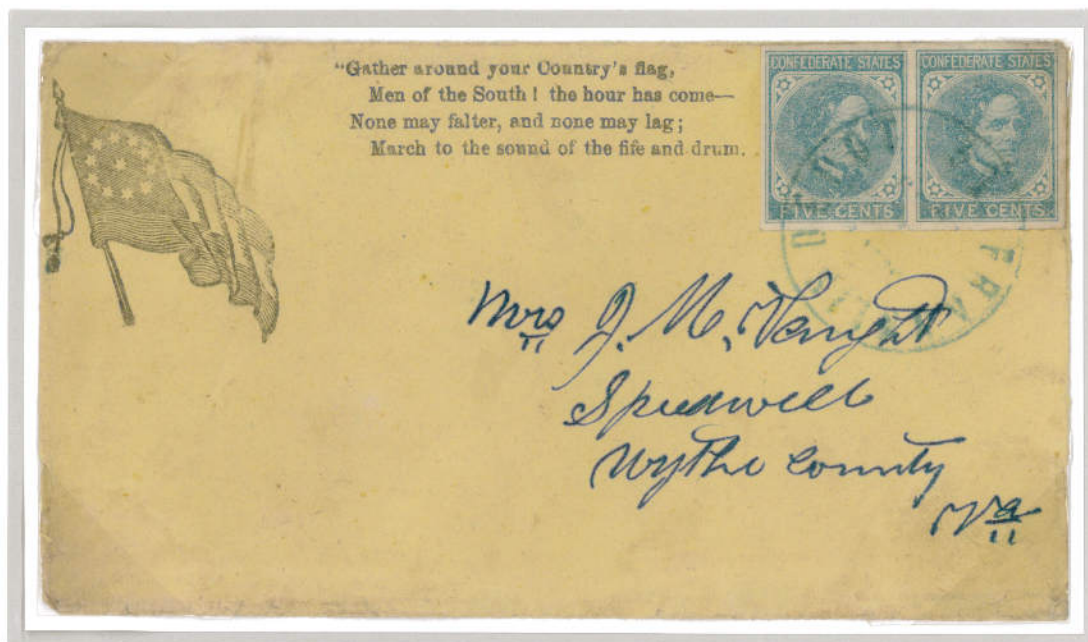 “Gather around your Country’s flag,
Men of the South! the hour has come—
None may falter, and none may lag;
March to the sound of the fife and drum.
CONFEDERATE STATES CONFEDERATE STATES
FIVE CENTS FIVE CENTS
Mrs J. M. Vaught
Speedwell
Wythe County
Va